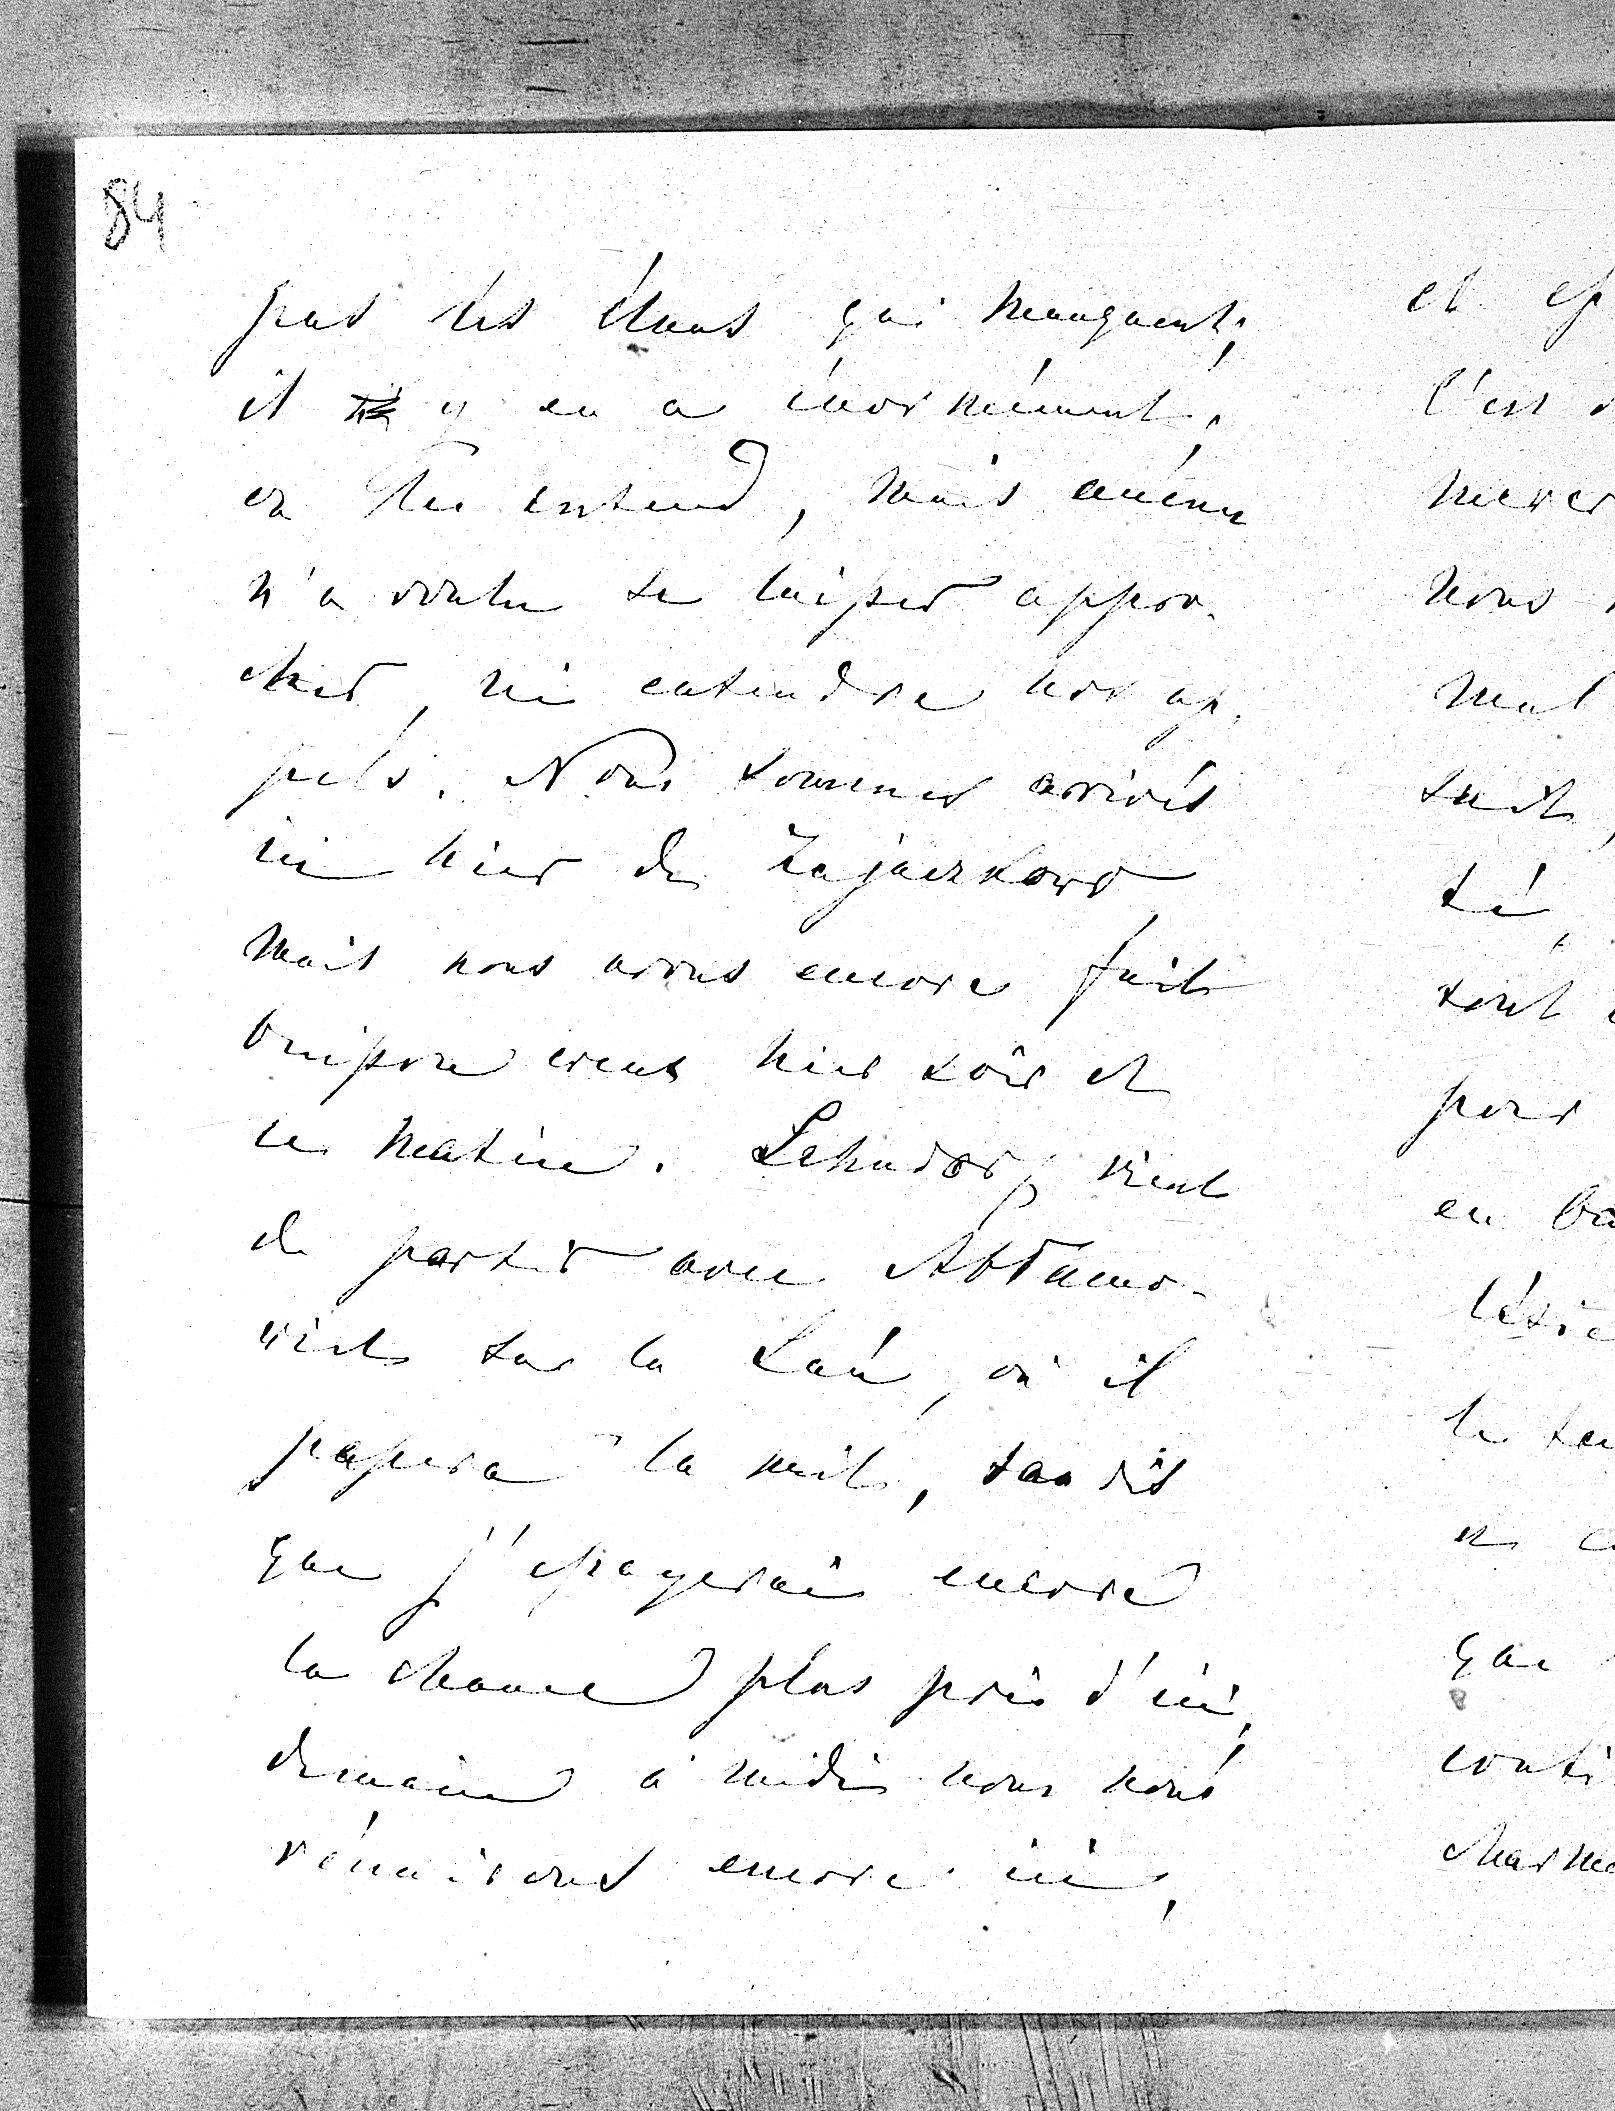 84
pas les élans qui manquent;
il y en a énormément;
on les entend, mais aucun
n'a voulu se laisser appro-
cher, ni entendre nos ap-
pels. Nous sommes arrivés
ici hier de Zajaczkowo
mais nous avons encore fait
buisson creux hier soir et
ce matin. Lehndorff vient
de partir avec Abramo-
vich sur la Laú, où il
passera la nuit, tandis
que j'essayerai encore
la chance plus près d'ici,
demain à midi nous nous
réunirons encore ici,
et
c'est
nous
mal
sont
pour
en
le
que